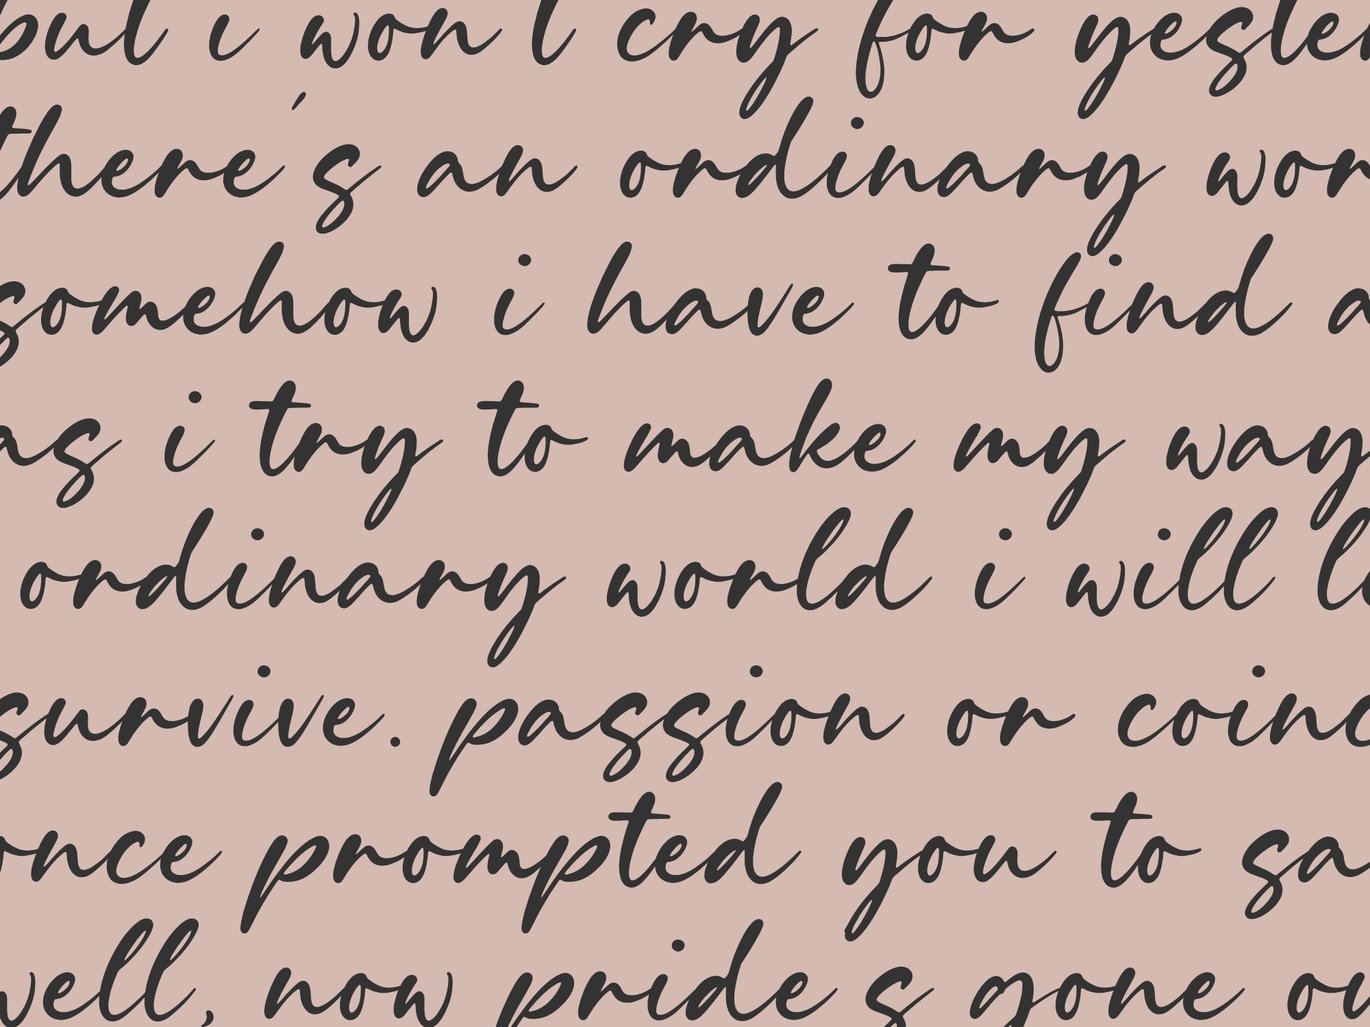 but i won't cry for yester
there's an ordinary wor
somehow i have to find a
as i try to make my way
ordinary world i will le
survive. passion or coinc
once prompted you to sa
well, now pride's gone ou